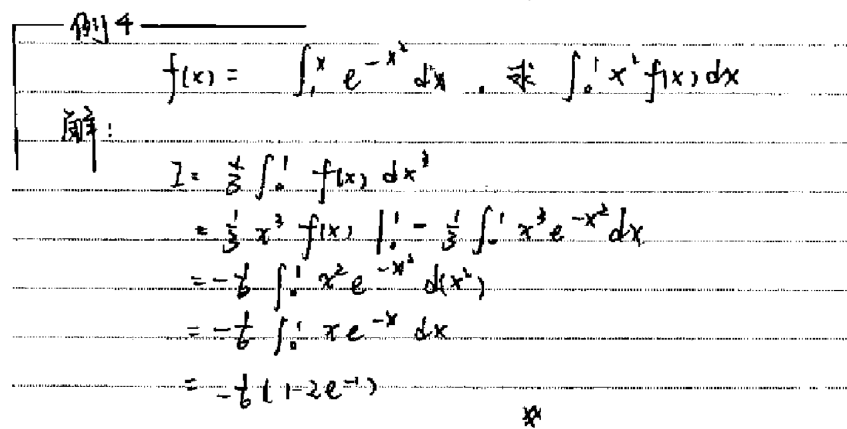 例4
f(x) = ∫₁ˣ e^{-x²} dx . 求 ∫₀¹ x² f(x) dx
解:
I = 1/3 ∫₀¹ f(x) dx³
= 1/3 x³ f(x) |₀¹ - 1/3 ∫₀¹ x³ e^{-x²} dx
= -1/6 ∫₀¹ x² e^{-x²} d(x²)
= -1/6 ∫₀¹ x e^{-x} dx
= -1/6 (1-2e^{-1})